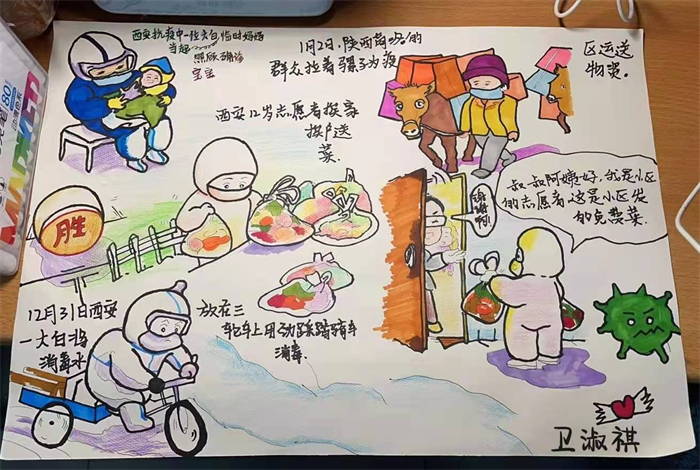 西安抗疫中一位大白临时妈妈
当起
照顾确诊
宝宝
1月2日,陕西商洛的
群众拉着骡子为疫
区运送
物资。
西安12岁志愿者挨家
挨户送
菜.
叔叔阿姨好,我是小区
的志愿者这是小区发
的免费菜.
谢谢啊!
胜
12月31日西安
一大白将
消毒水
放在三
轮车上用力蹬踏骑车
消毒.
卫淑祺
MARKER
80